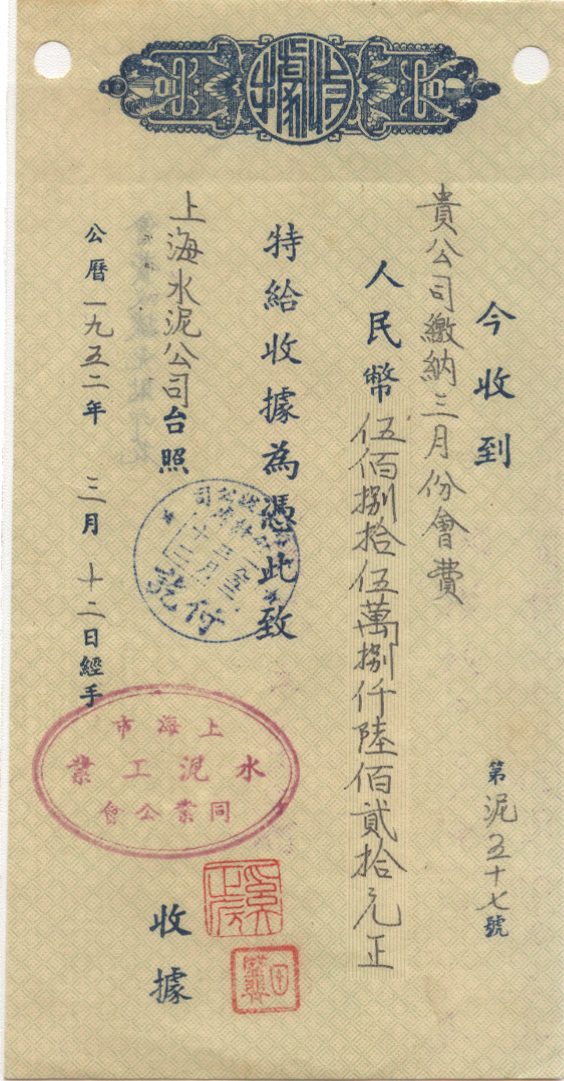 收據
今收到
第泥五十七號
貴公司繳納三月份會費
人民幣伍佰捌拾伍萬捌仟陸佰貳拾元正
特給收據為憑此致
上海水泥公司台照
公曆一九五二年 三月 十二日經手
付訖
上海市
水泥工業
同業公會
收據